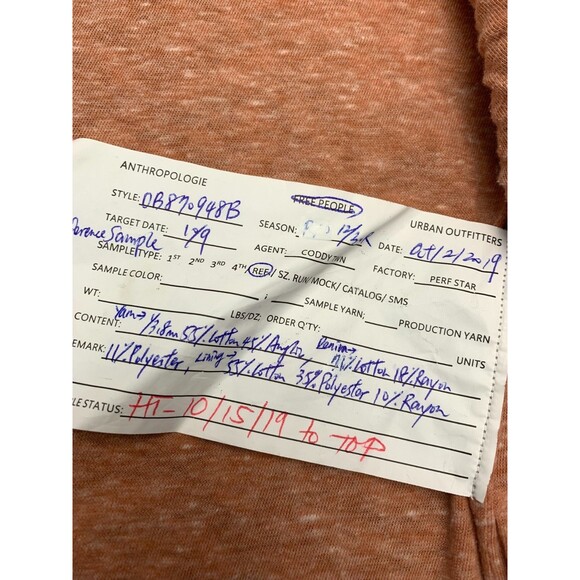 ANTHROPOLOGIE FREE PEOPLE URBAN OUTFITTERS
STYLE: OB870948B SEASON: 12/ DATE: Oct/2/2019
TARGET DATE: AGENT: CODDY TWN FACTORY: PERF STAR
Sample
SAMPLE TYPE: 1ST 2ND 3RD 4TH REF / SZ. RUN/MOCK/ CATALOG/ SMS
SAMPLE COLOR: ; SAMPLE YARN: PRODUCTION YARN
WT: LBS/DZ: ORDER Q'TY: UNITS
CONTENT: Yarn→ 55% Cotton 45% Denim→ 71% Cotton 18% Rayon
EMARK: 11% Polyester, Lining→ 55% Cotton 35% Polyester 10% Rayon
LE STATUS: HT- 10/15/19 to TOP